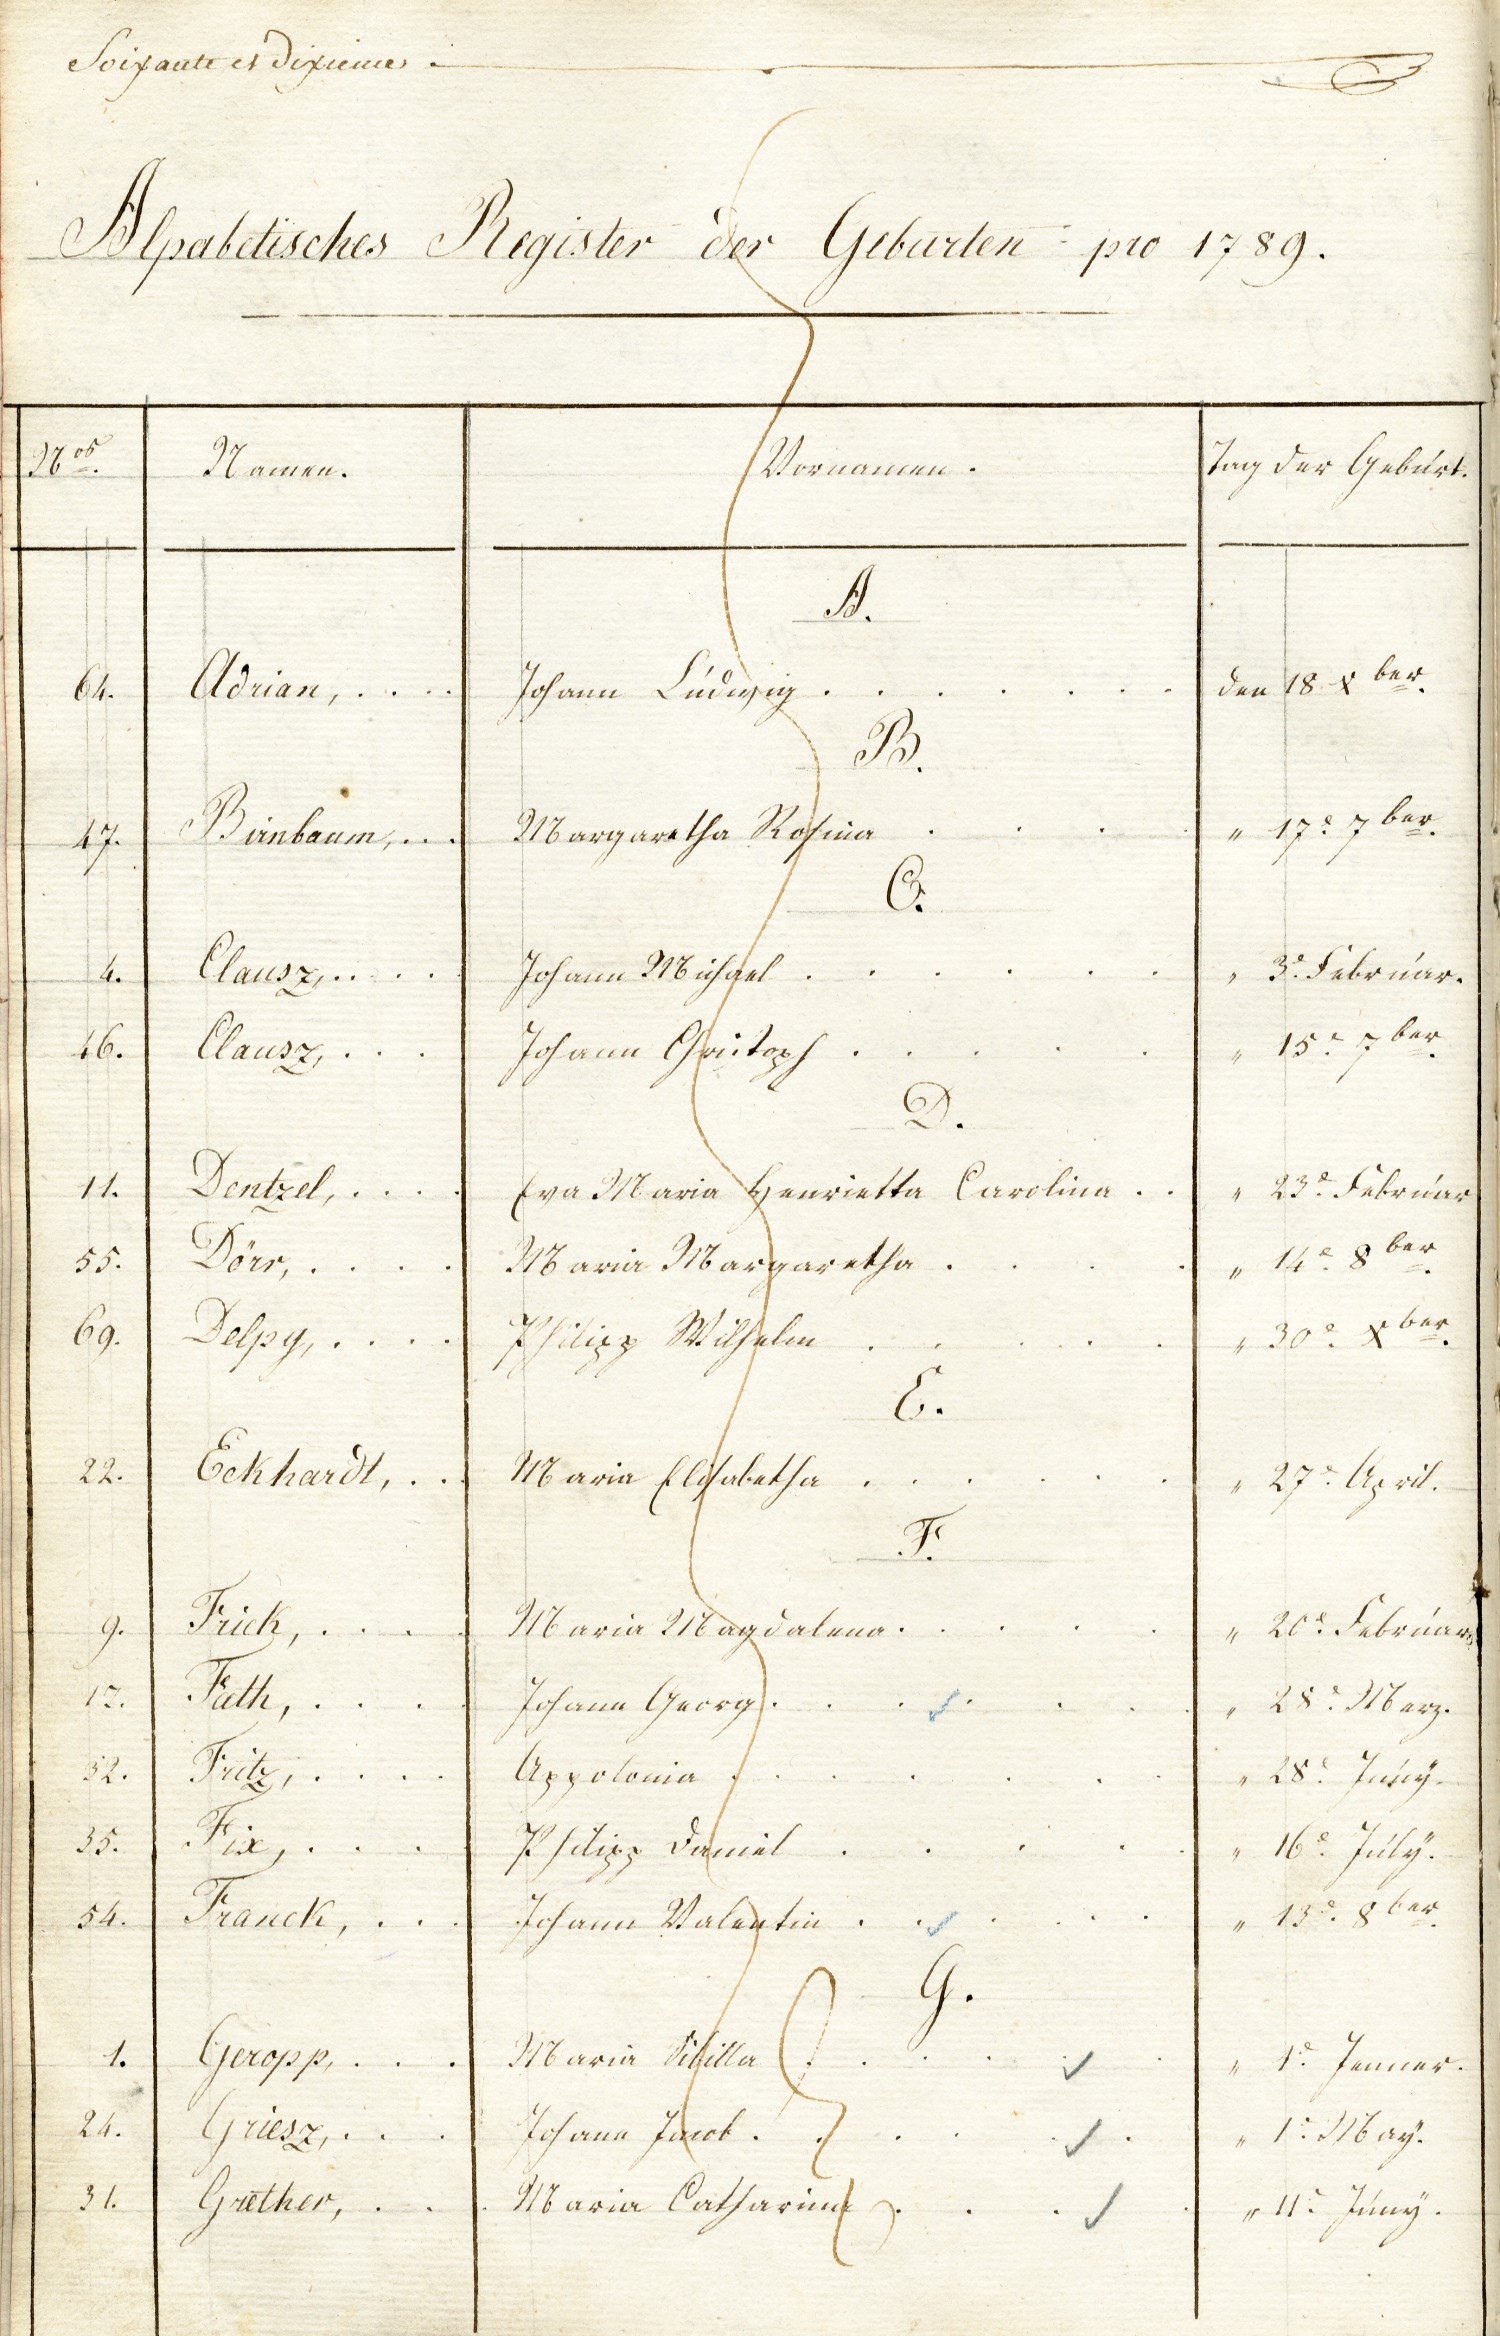 Soixante et dixieme.
Alpabetisches Register der Geburten pro 1789.
Nos. Namen. Vornamen. Tag der Geburt.
A.
64. Adrian, .... Johann Ludwig ....... den 18 Xber.
B.
47. Birnbaum, ... Margaretha Rosina .... " 17e 7ber.
C.
4. Clausz, .... Johann Michael ....... " 3e Februar.
46. Clausz, ... Johann Christoph ..... " 15e 7ber.
D.
11. Dentzel, .... Eva Maria Henrietta Carolina .. " 23e Februar
55. Dörr, .... Maria Margaretha .... " 14e 8ber.
69. Delpy, .... Philipp Wilhelm ..... " 30e Xber.
E.
22. Eckhardt, ... Maria Elisabetha ...... " 27e April.
F.
9. Frick, .... Maria Magdalena ..... " 20e Februar
Fæth, .... Johann Georg ....... " 28e Merz.
32. Fritz, .... Appolonia ....... " 28e Juny.
35. Fix, .... Philipp Daniel ..... " 16e July.
54. Franck, ... Johann Valentin ...... " 13e 8ber.
G.
1. Geropp, ... Maria Sibilla ..... " 1e Jenner.
24. Griesz, ... Johann Jacob ...... " 1e May.
31. Græther, ... Maria Catharina .... " 11e Juny.